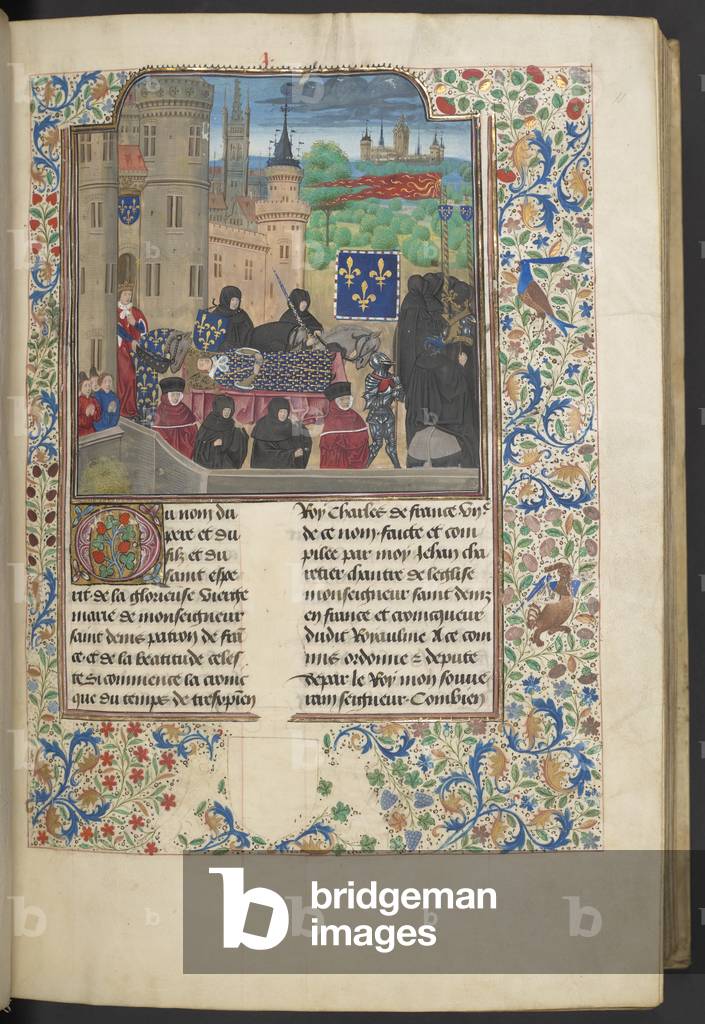 u nom du
pere et du
filz et du
saint espe
rit de la glorieuse vierge
marie de monseigneur
saint denis patron de frā
ce et de la beatitude celes
te Si commence la cronic
que du temps de trespuen
Roy Charles de france vijᵉ
de ce nom faicte et com
pilee par moy Jehan cha
retier chantre de leglise
monseigneur saint denis
en france et cronicqueur
dudit Royaulme A ce com
mis ordonne & depute
depar le Roy mon souve
rain seigneur Combien
bridgeman
images